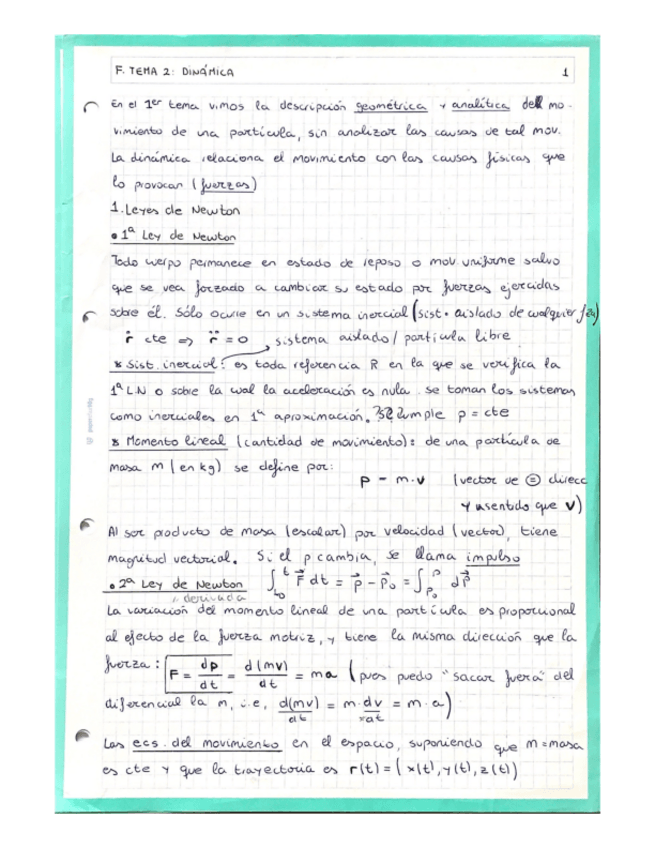 F. TEMA 2: DINÁMICA 1
En el 1er tema vimos la descripción geométrica y analítica del mo-
vimiento de una partícula, sin analizar las causas de tal mov.
La dinámica relaciona el movimiento con las causas físicas que
lo provocan (fuerzas)
1. Leyes de Newton
• 1ª Ley de Newton
Todo cuerpo permanece en estado de reposo o mov. uniforme salvo
que se vea forzado a cambiar su estado por fuerzas ejercidas
sobre él. Sólo ocurre en un sistema inercial (sist. aislado de cualquier fza)
ṙ cte => r̈ = 0 sistema aislado/partícula libre
* Sist. inercial: es toda referencia R en la que se verifica la
1ª L.N o sobre la cual la aceleración es nula. se toman los sistemas
como inerciales en 1ª aproximación. Se cumple p = cte
* Momento lineal (cantidad de movimiento): de una partícula de
masa m (en kg) se define por: p = m·v (vector de = direcc
y sentido que v)
Al ser producto de masa (escalar) por velocidad (vector), tiene
magnitud vectorial. Si el p cambia, se llama impulso
• 2ª Ley de Newton ∫ₜ₀ᵗ F⃗ dt = p⃗ - p⃗₀ = ∫ₚ₀ᵖ dp⃗
derivada
La variación del momento lineal de una partícula es proporcional
al efecto de la fuerza motriz, y tiene la misma dirección que la
fuerza: F = dp/dt = d(mv)/dt = ma (pues puedo "sacar fuera" del
diferencial la m, i.e, d(mv)/dt = m·dv/dt = m·a)
Las ecs. del movimiento en el espacio, suponiendo que m=masa
es cte y que la trayectoria es r(t) = (x(t), y(t), z(t))